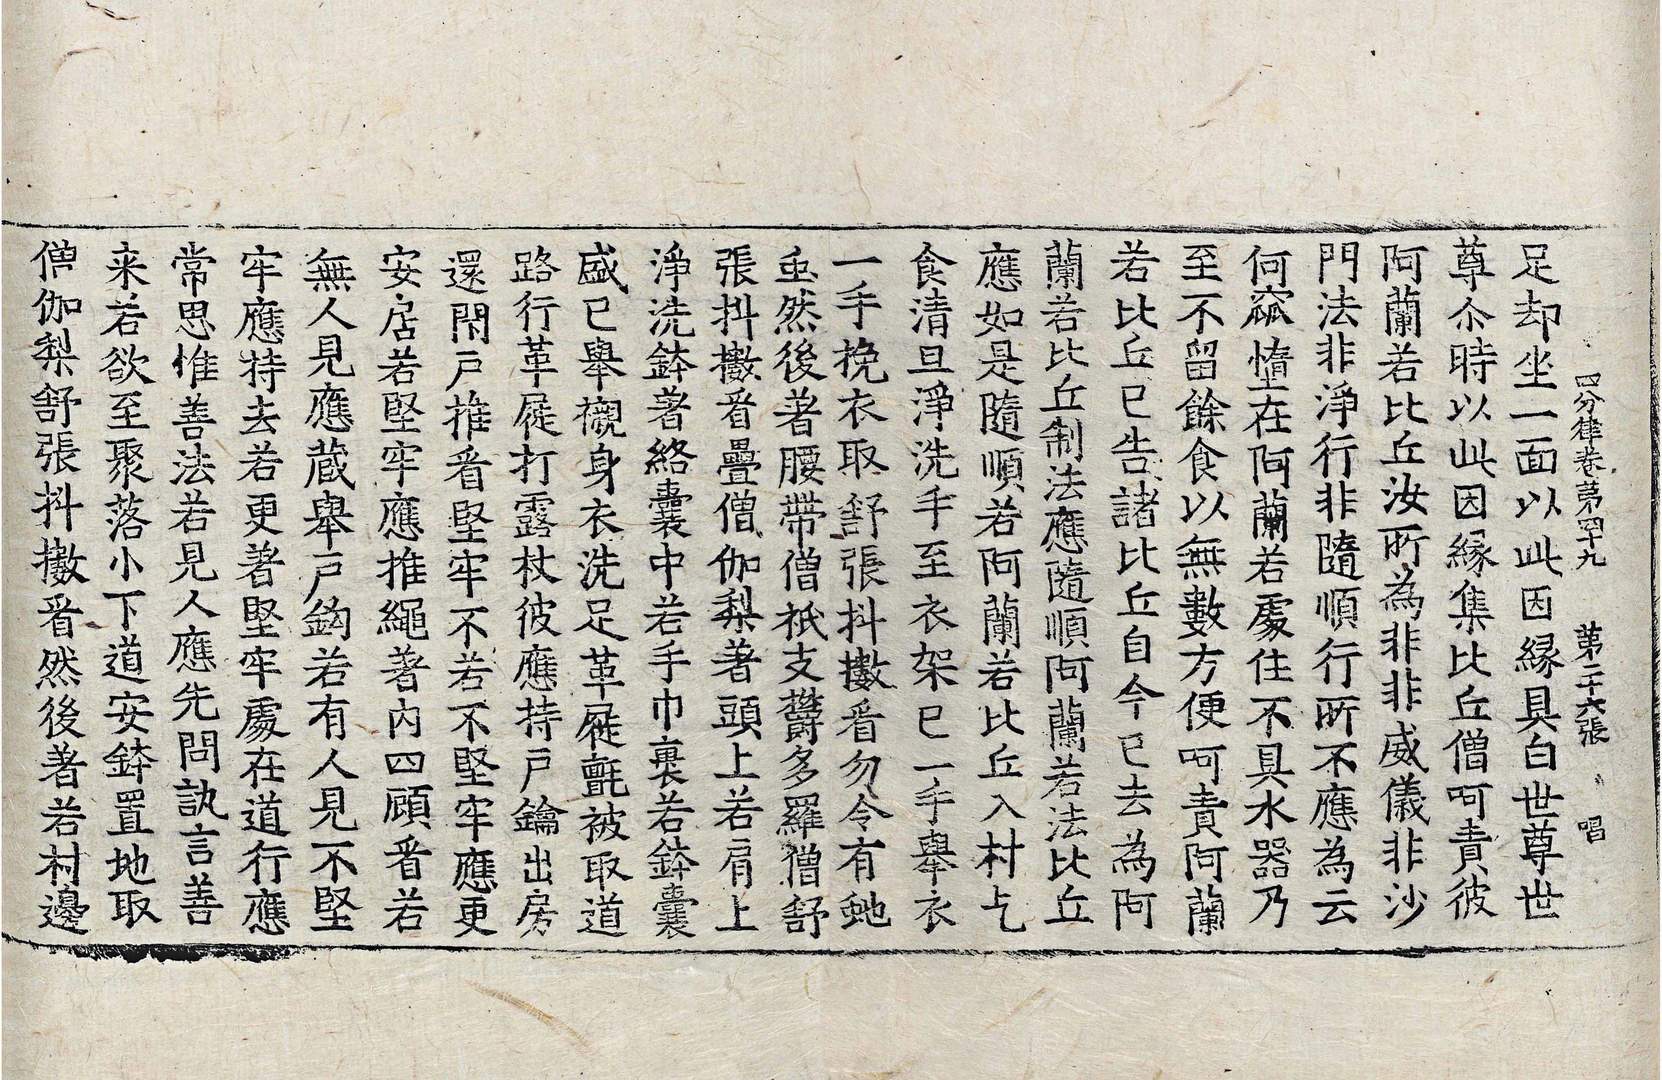 四分律卷第四十九　第二十六張　唱
足却坐一面以此因緣具白世尊世
尊尒時以此因緣集比丘僧呵責彼
阿蘭若比丘汝所為非非威儀非沙
門法非淨行非隨順行所不應為云
何窳墯在阿蘭若處住不具水器乃
至不留餘食以無數方便呵責阿蘭
若比丘已告諸比丘自今已去為阿
蘭若比丘制法應隨順阿蘭若法比丘
應如是隨順若阿蘭若比丘入村乞
食清旦淨洗手至衣架已一手舉衣
一手挽衣取舒張抖擻看勿令有虵
虫然後著腰帶僧祇支欝多羅僧舒
張抖擻看疊僧伽梨著頭上若肩上
淨洗鉢著絡囊中若手巾裹若鉢囊
盛已舉襯身衣洗足革屣氈被取道
路行革屣打露杖彼應持戶鑰出房
還閇戶推看堅牢不若不堅牢應更
安扂若堅牢應推繩著內四顧看若
無人見應蔵舉戶鉤若有人見不堅
牢應持去若更著堅牢處在道行應
常思惟善法若見人應先問訊言善
来若欲至聚落小下道安鉢置地取
僧伽梨舒張抖擻看然後著若村邊